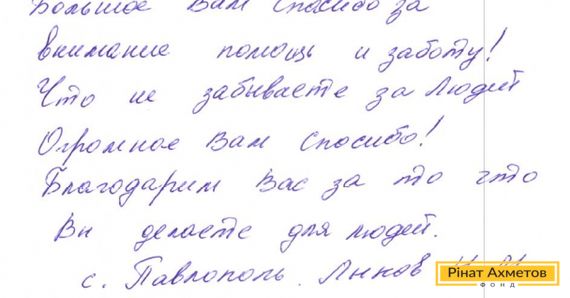 Большое Вам спасибо за
внимание помощь и заботу!
Что не забываете за людей
Огромное Вам спасибо!
Благодарим Вас за то что
Вы делаете для людей.
с. Павлополь.
Рінат Ахметов
ФОНД